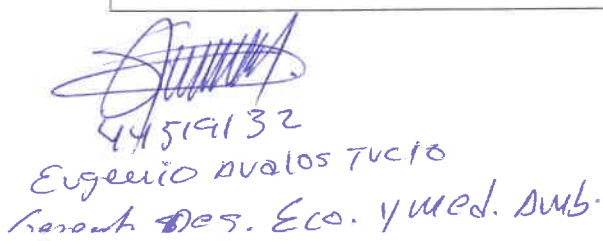 44519132
Eugenio Avalos Tucto
Gerent Des. Eco. y Med. Amb.